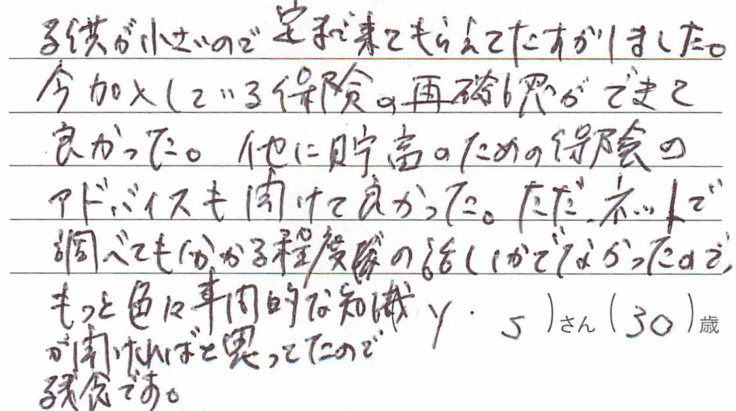 子供が小さいので家まで来てもらえてたすかりました。
今加入している保険の再確認ができて
良かった。他に貯蓄のための保険の
アドバイスも聞けて良かった。ただ、ネットで
調べても分かる程度の話しかでなかったので、
もっと色々専門的な知識 Y.S)さん(30)歳
が聞ければと思ってたので
残念です。